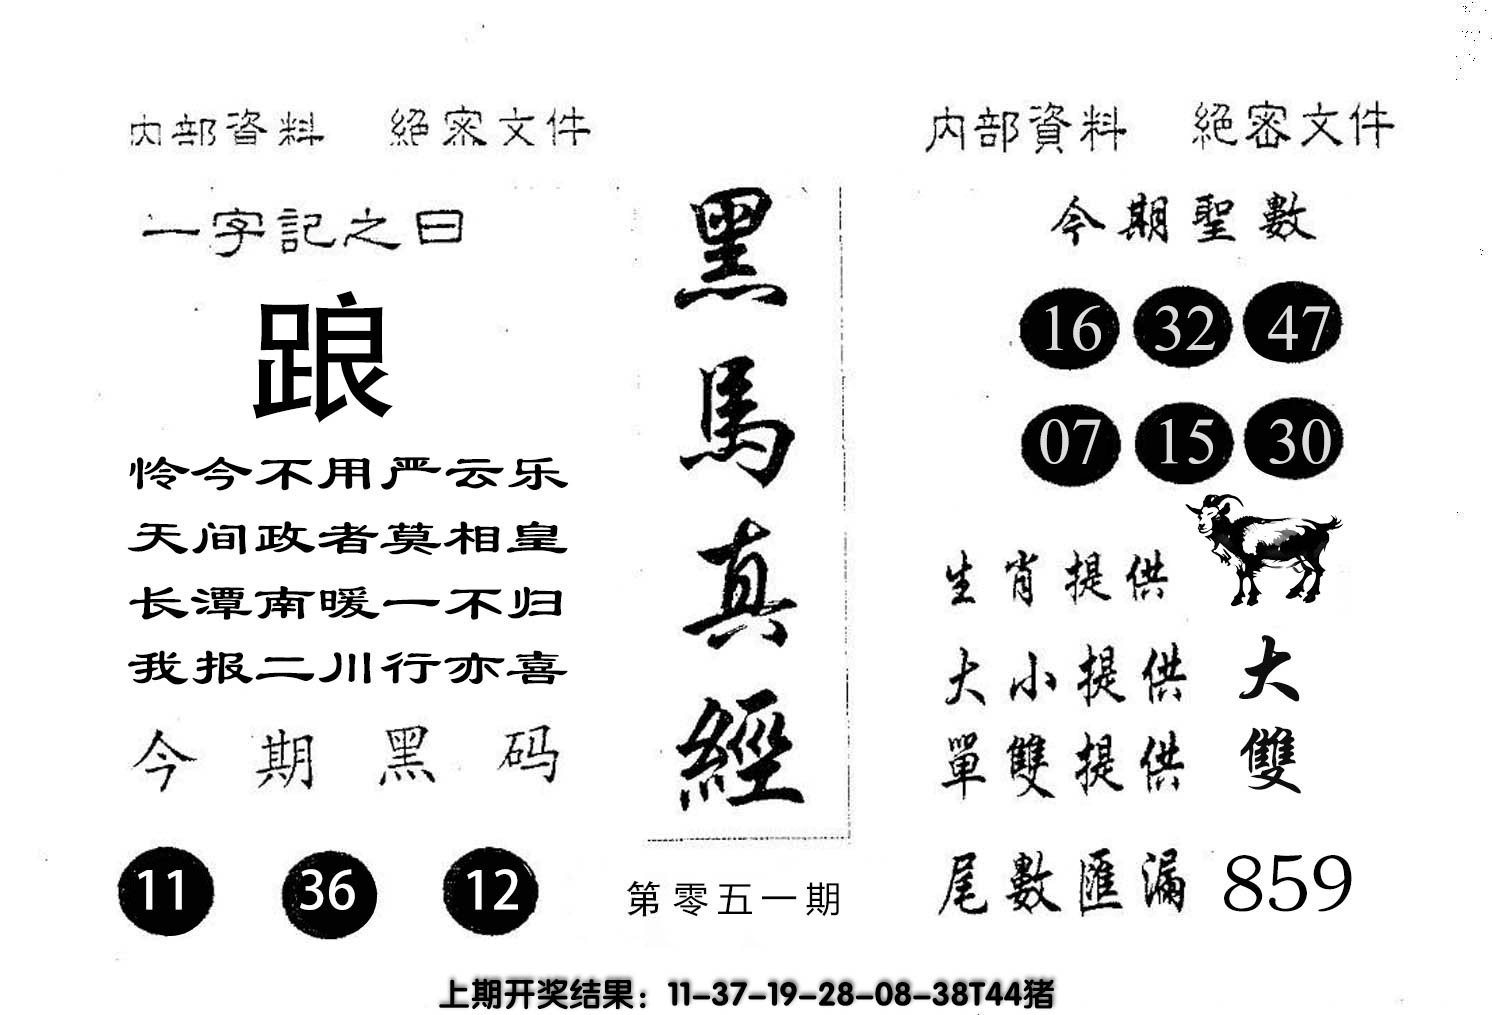 内部資料 絕密文件
一字記之曰
踉
怜今不用严云乐
天间政者莫相皇
长潭南暖一不归
我报二川行亦喜
今期黑码
11 36 12
黑馬真經
第零五一期
内部資料 絕密文件
今期聖數
16 32 47
07 15 30
生肖提供
大小提供 大
單雙提供 雙
尾數匯漏 859
上期开奖结果：11-37-19-28-08-38T44猪